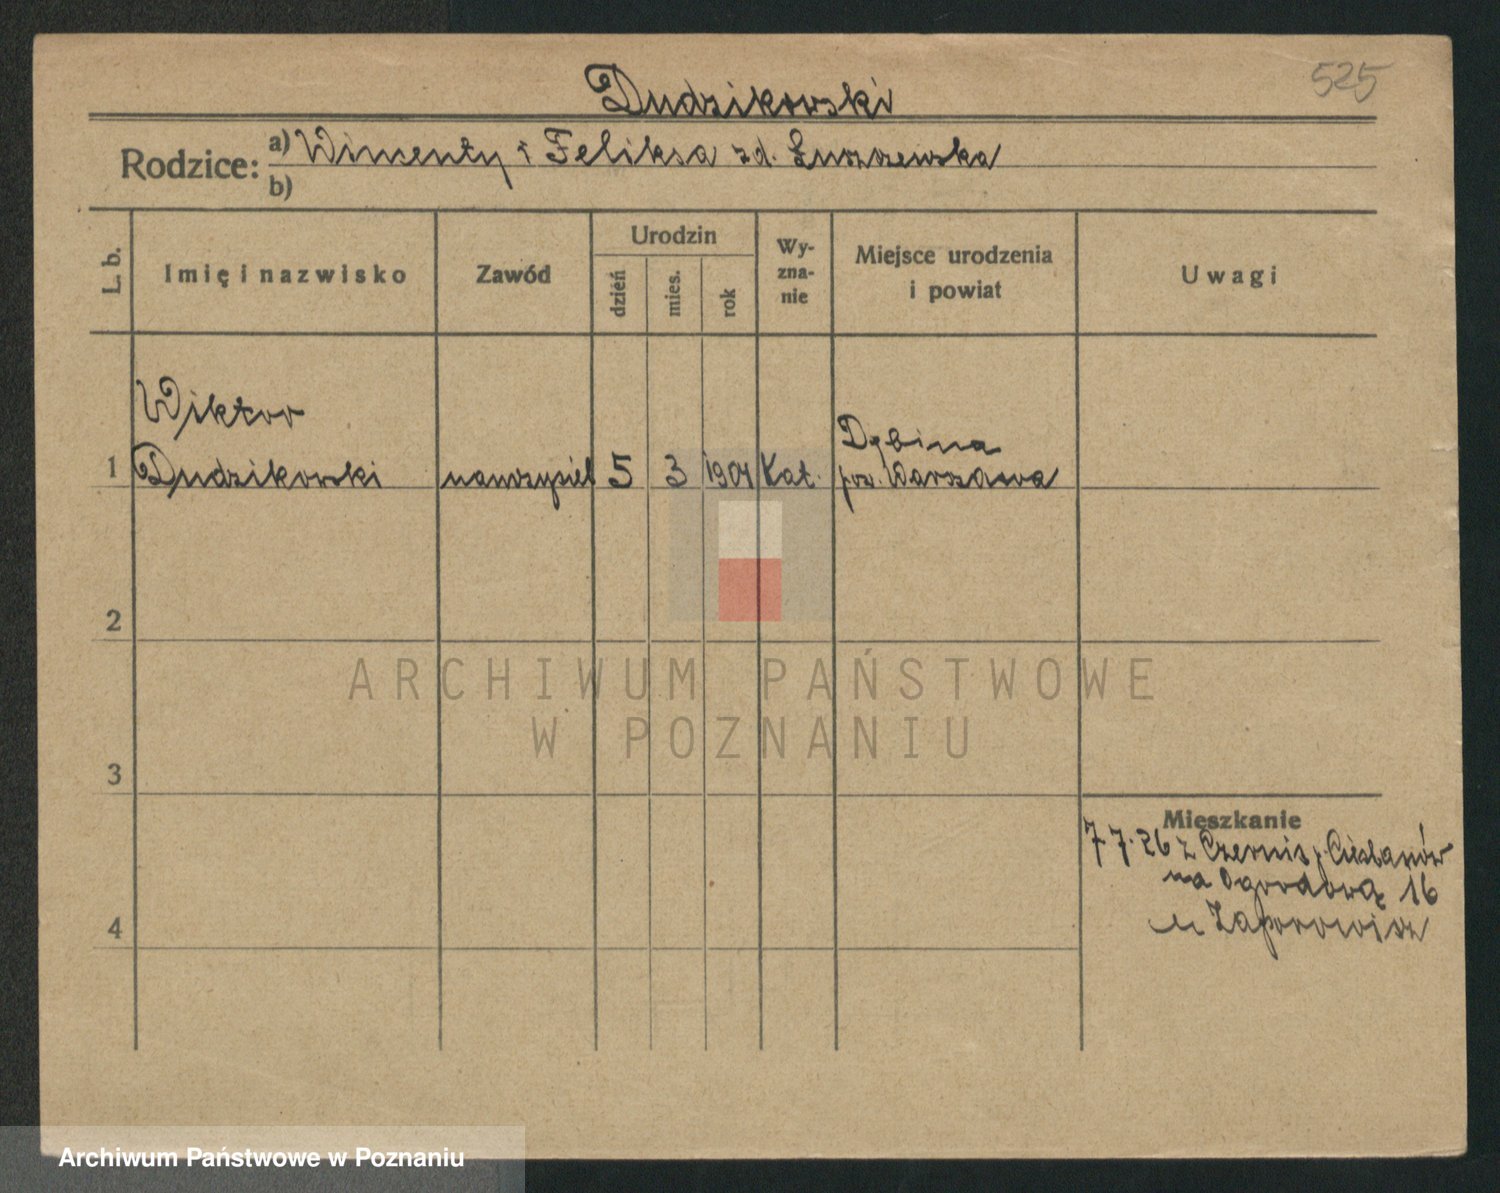 525
Dudzikowski
Rodzice: a) Wincenty i Feliksa zd. Łuszczewska
b)
L. b.
Imię i nazwisko
Zawód
Urodzin
dzień
mies.
rok
Wy-
zna-
nie
Miejsce urodzenia
i powiat
Uwagi
Wiktor
1 Dudzikowski nauczyciel 5 3 1901 Kat.
Dębina
pow. Warszawa
2
3
4
Mieszkanie
7.7.26 z p. Cieszanów
na Ogrodową 16
u
ARCHIWUM PAŃSTWOWE
W POZNANIU
Archiwum Państwowe w Poznaniu